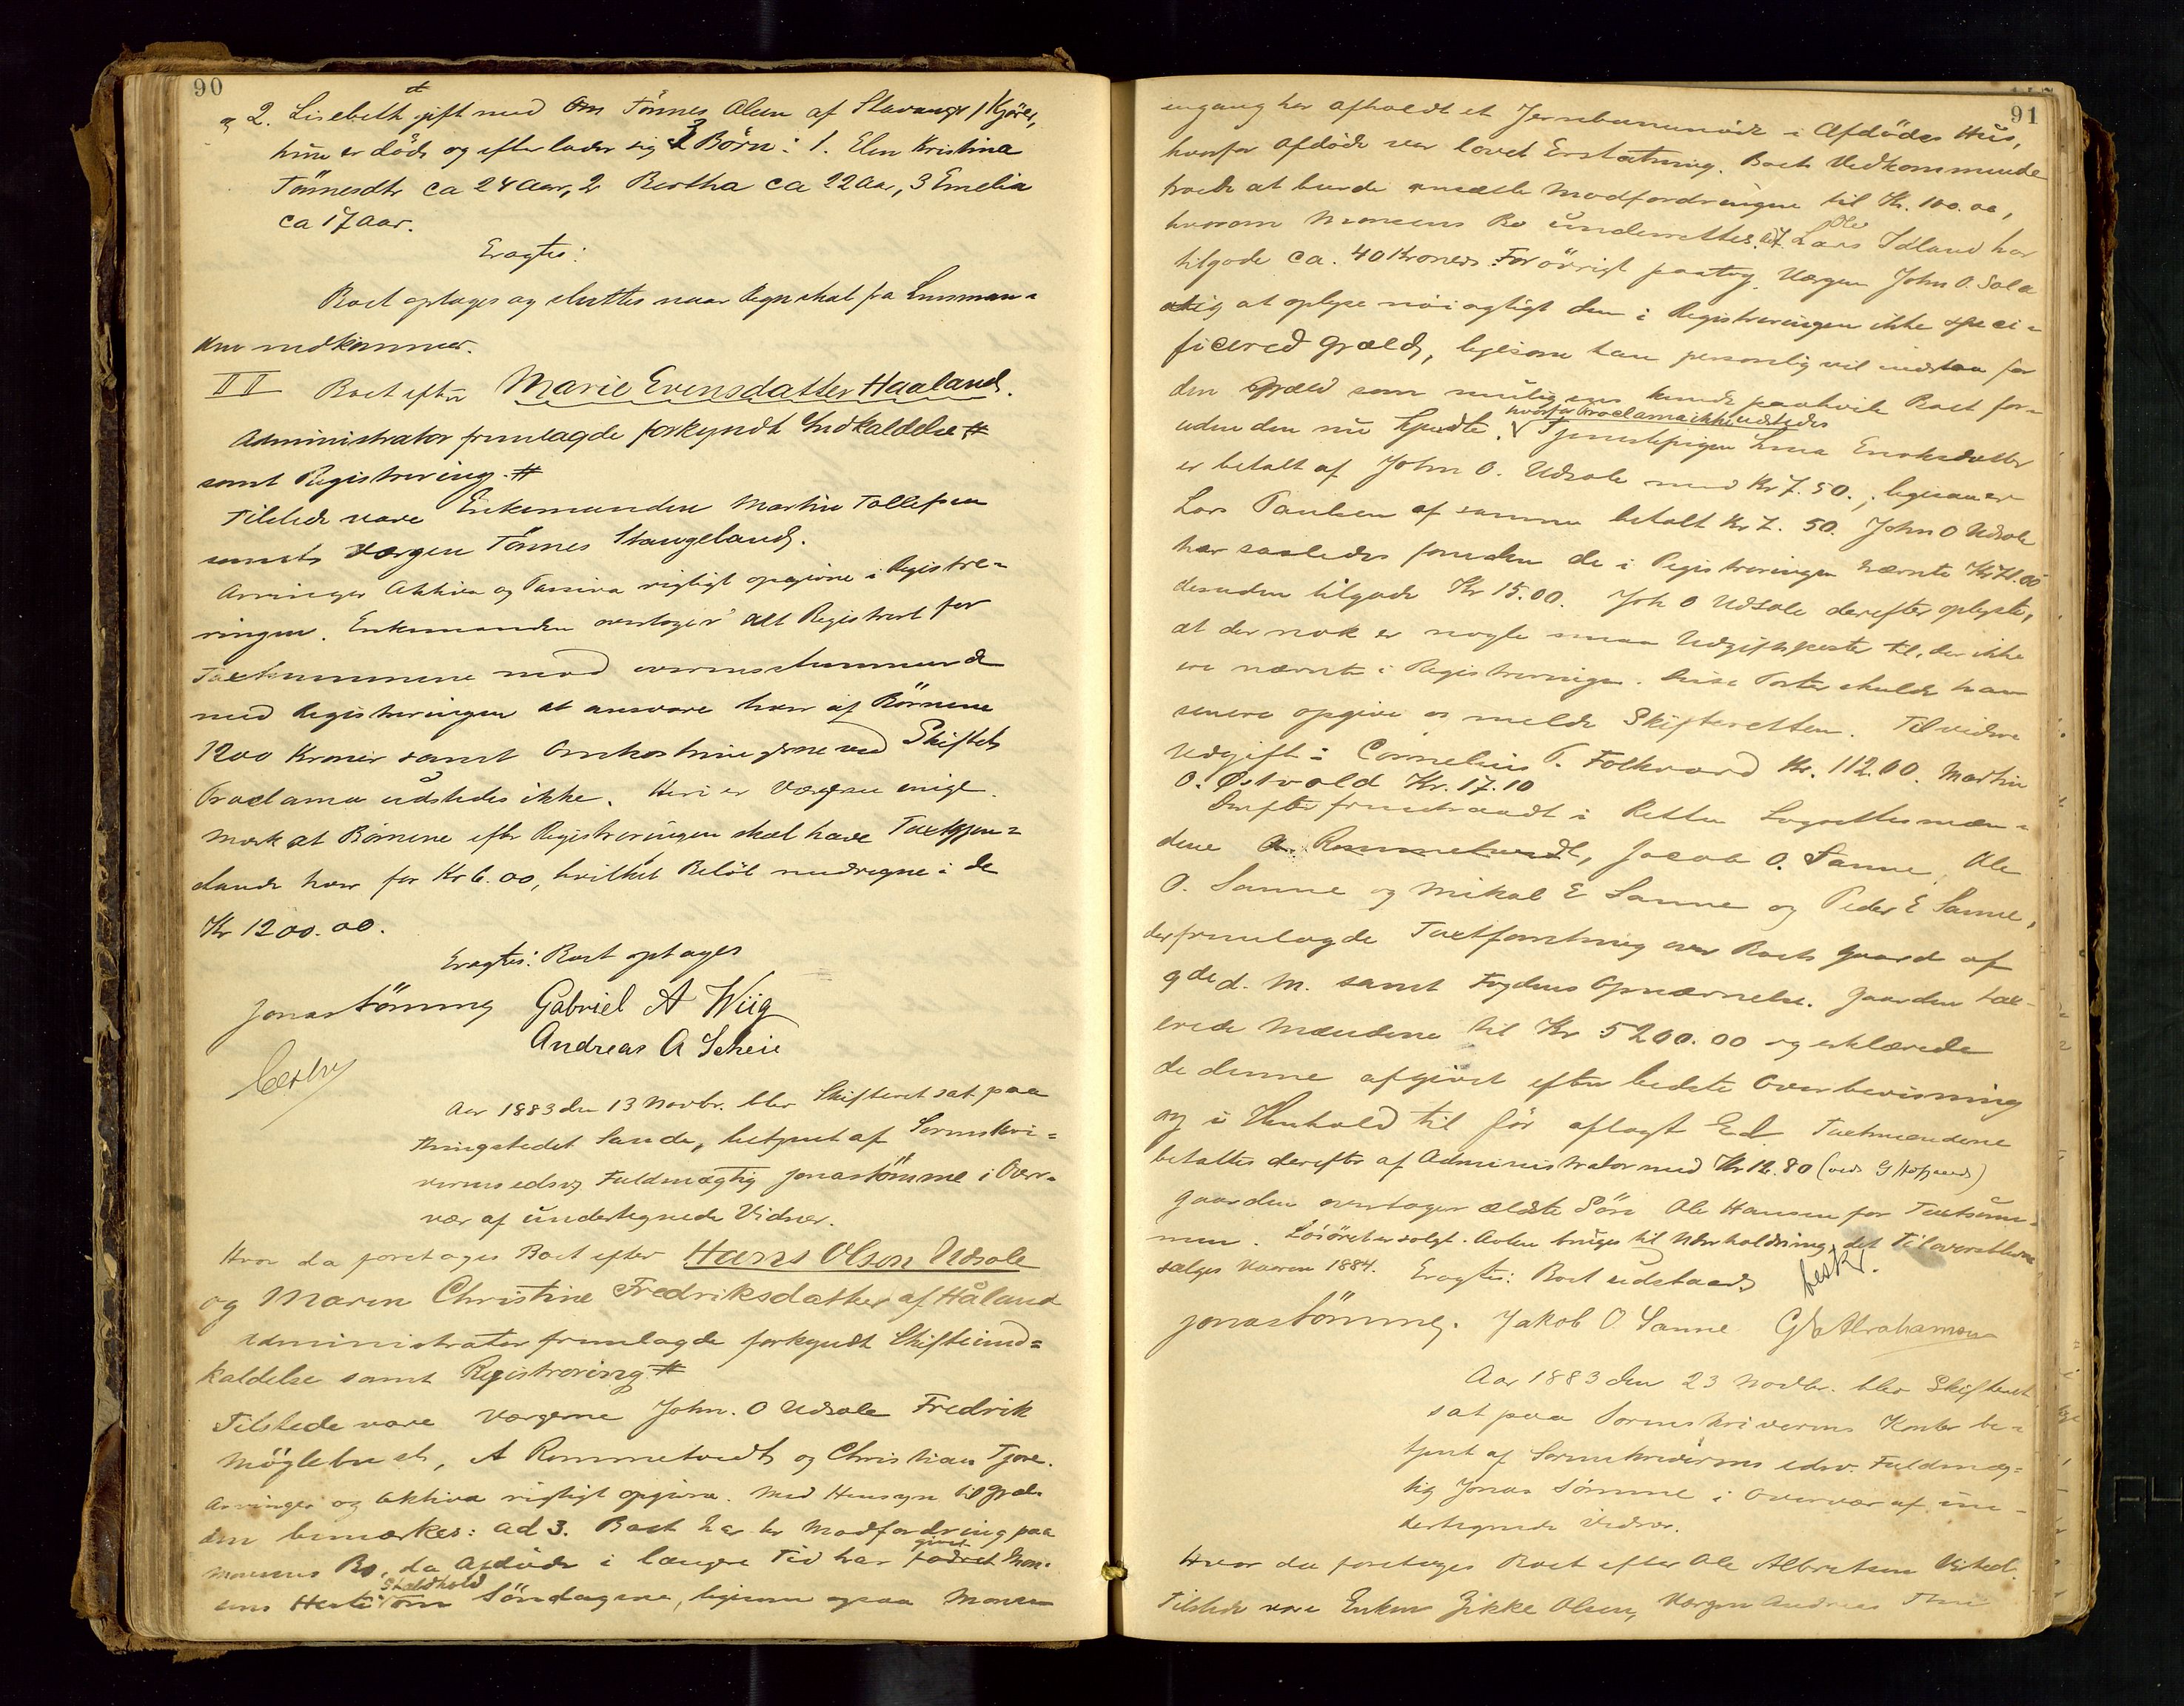 90
og 2. Lisebeth gift med Tönnes Olsen af Stavanger /Kjörer,
hun er död og efterlader sig 3 Börn: 1. Elen Kristina
Tönnesdtr ca 24 Aar, 2 Bertha ca 22 Aar, 3 Emelia
ca 17 Aar.
Eragtes:
Boet optages og sluttes naar Regnskab fra Lensman-
den indkommer.
II Boet efter Marie Evensdatter Haaland.
Administrator fremlagde forkyndt Indkaldelse #
samt Registrering. #
Tilstede vare Enkemanden Martin Tollefsen
samt Værgen Tönnes Stangeland.
Arvinger Aktiva og Passiva rigtigt opgivne i Registre-
ringen. Enkemanden overtager alt Registreret for
Taxtsummene mod overensstemmende
med Registreringen at ansvare hver af Börnene
1200 Kroner samt Omkostningerne ved Skiftet
Proclama udstedes ikke. Heri er Værgen enig.
Mærk at Börnene efter Registreringen skal have
hver for Kr 6.00, hvilket Belöb medregnes i de
Kr 1200.00.
Eragtes: Boet optages
Jonas Sömme Gabriel A Wiig
Andreas A Scheie
Aar 1883 den 13 Novbr. blev Skifteret sat paa
Thingstedet Sande, betjent af Sorenskri-
verens edsv Fuldmægtig Jonas Sömme i Over-
vær af undertegnede Vidner.
Hvor da foretages Boet efter Hans Olsen Udsole
og Maren Christine Fredriksdatter af Håland
Administrator fremlagde forkyndt Skifteind-
kaldelse samt Registrering #
Tilstede vare Værgerne John. O Udsole Fredrik
Möglebust, A Rommetvedt og Christian Tjore.
Arvinger og Aktiva rigtigt opgivne. Med Hensyn til Gjæl-
den bemærkes: ad 3. Boet har en Modfordring paa
Monsens Bo, da Afdöde i længere Tid har givet Mon-
sens Heste Staldhold om Söndagene, ligesom ogsaa Monsen
91
engang har afholdt et Jernbanemöde i Afdödes Hus,
hvorfor Afdöde var lovet Erstatning. Boets Vedkommende
troede at burde ansætte Modfordringen til Kr. 100.00,
hvorom Monsens Bo underrettes. ad 7. Lars Idland har
tilgode ca. 40 Kroner. For övrigt paatog Værgen John O. Sola
sig at oplyse nöiagtigt den i Registreringen ikke speci-
ficered Gjæld, ligesom han personlig vil indstaa for
den Gjæld som muligens kunde paahvile Boet for-
hvorfor Proclama ikke udstedes
uden den nu kjendte. Tjenestepigen Lina Enoksdatter
er betalt af John O. Udsole med Kr 7.50., ligesaa er
Lars Paulsen af samme betalt Kr 7.50. John O Udsole
har saaledes foruden de i Registreringen nævnte
desuden tilgode Kr 15.00. Joh O Udsole derefter oplyste,
at der nok er nogle smaa Udgiftsposter til, der ikke
ere nævnte i Registreringen. Disse Poster skulde han
senere opgive og melde Skifteretten. Til videre
Udgift: Cornelius T. Folkvord Kr. 112.00. Martin
O. Östvold Kr. 17.10
Derefter fremstaadt i Retten Lagrettesmæn-
dene A. Rommetvedt, Jacob O. Sanne, Ole
O. Sanne og Mikal E Sanne og Peder E Sanne,
der fremlagde Taxtforretning over Boets Gaard af
9de d. M. samt Fogdens Opnævnelse. Gaarden tax-
erede Mændene til Kr 5200.00 og erklærede
de denne afgivet efter bedste Overbevisning
og i Henhold til för aflagt Ed. Taxtmændene
betaltes derefter af Administrator med Kr 12.80
Gaarden overtager ældste Sön Ole Hansen for Taxtsum-
men. Lösöret er solgt. Avlen bruges til Underholdning, det Tiloversblevne
sælges Vaaren 1884. Eragtes: Boet udstaard beskr.
Jonas Sömme. Jakob O Sanne G Abrahamsen
Aar 1883 den 23 Novbr. blev Skifteret
sat paa Sorenskriverens Kontor be-
tjent af Sorenskriverens edsv. Fuldmæg-
tig Jonas Sömme i Overvær af un-
dertegnede Vidner.
Hvor da foretages Boet efter Ole Albretsen
Tilstede vare Enken Zikke Olsen, Værgen Andreas